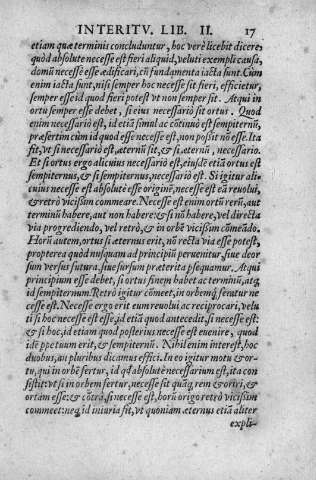 INTERITV. LIB. II. 17
etiam quæ terminis concluduntur, hoc verè licebit dicere,
quòd absolutè necesse est fieri aliquid, veluti exempli causa,
domũ necesse esse ædificari, cũ fundamenta iacta sunt. Cùm
enim iacta sunt, nisi semper hoc necesse sit fieri, efficietur,
semper esse id quod fieri potest vt non semper sit. Atqui in
ortu semper esse debet, si eius necessariò sit ortus. Quod
enim necessariò est, id etiã simul ac cõtinuò est sempiternũ,
præsertim cùm id quod esse necesse est, non possit nõ esse. Ita
fit, vt si necessariò est, æternũ sit, & si æternũ, necessariò.
Et si ortus ergo alicuius necessariò est, eiusdẽ etiã ortus est
sempiternus, & si sempiternus, necessariò est. Si igitur ali-
cuius necesse est absolutè esse originẽ, necesse est eã reuolui,
& retrò vicißim commeare. Necesse est enim ortũ rerũ, aut
terminũ habere, aut non habere: & si nõ habere, vel directa
via progrediendo, vel retrò, & in orbẽ vicißim cõmeãdo.
Horũ autem, ortus si æternus erit, nõ recta via esse potest,
propterea quòd nusquam ad principiũ peruenitur, siue deor
sum versus futura, siue sursum præterita psequamur. Atqui
principium esse debet, si ortus finem habet ac terminũ, atq;
id sempiternum. Retrò igitur cõmeet, in orbemq; feratur ne
cesse est. Necesse ergo erit eum reuolui ac reciprocari, velu
ti si hoc necesse est esse, id etiã quod antecedit, si necesse est:
& si hoc, id etiam quod posterius necesse est euenire, quod
idẽ ppetuum erit, & sempiternũ. Nihil enim interest, hoc
duobus, an pluribus dicamus effici. In eo igitur motu & or-
tu, qui in orbẽ fertur, id qđ absolutè necessarium est, ita con
sistit: vt si in orbem fertur, necesse sit quãq; rem & oriri, &
ortam esse: & cõtrà, si necesse est, horũ origo retrò vicißim
commeet: neq; id iniuria fit, vt quoniam æternus etiã aliter
expli-